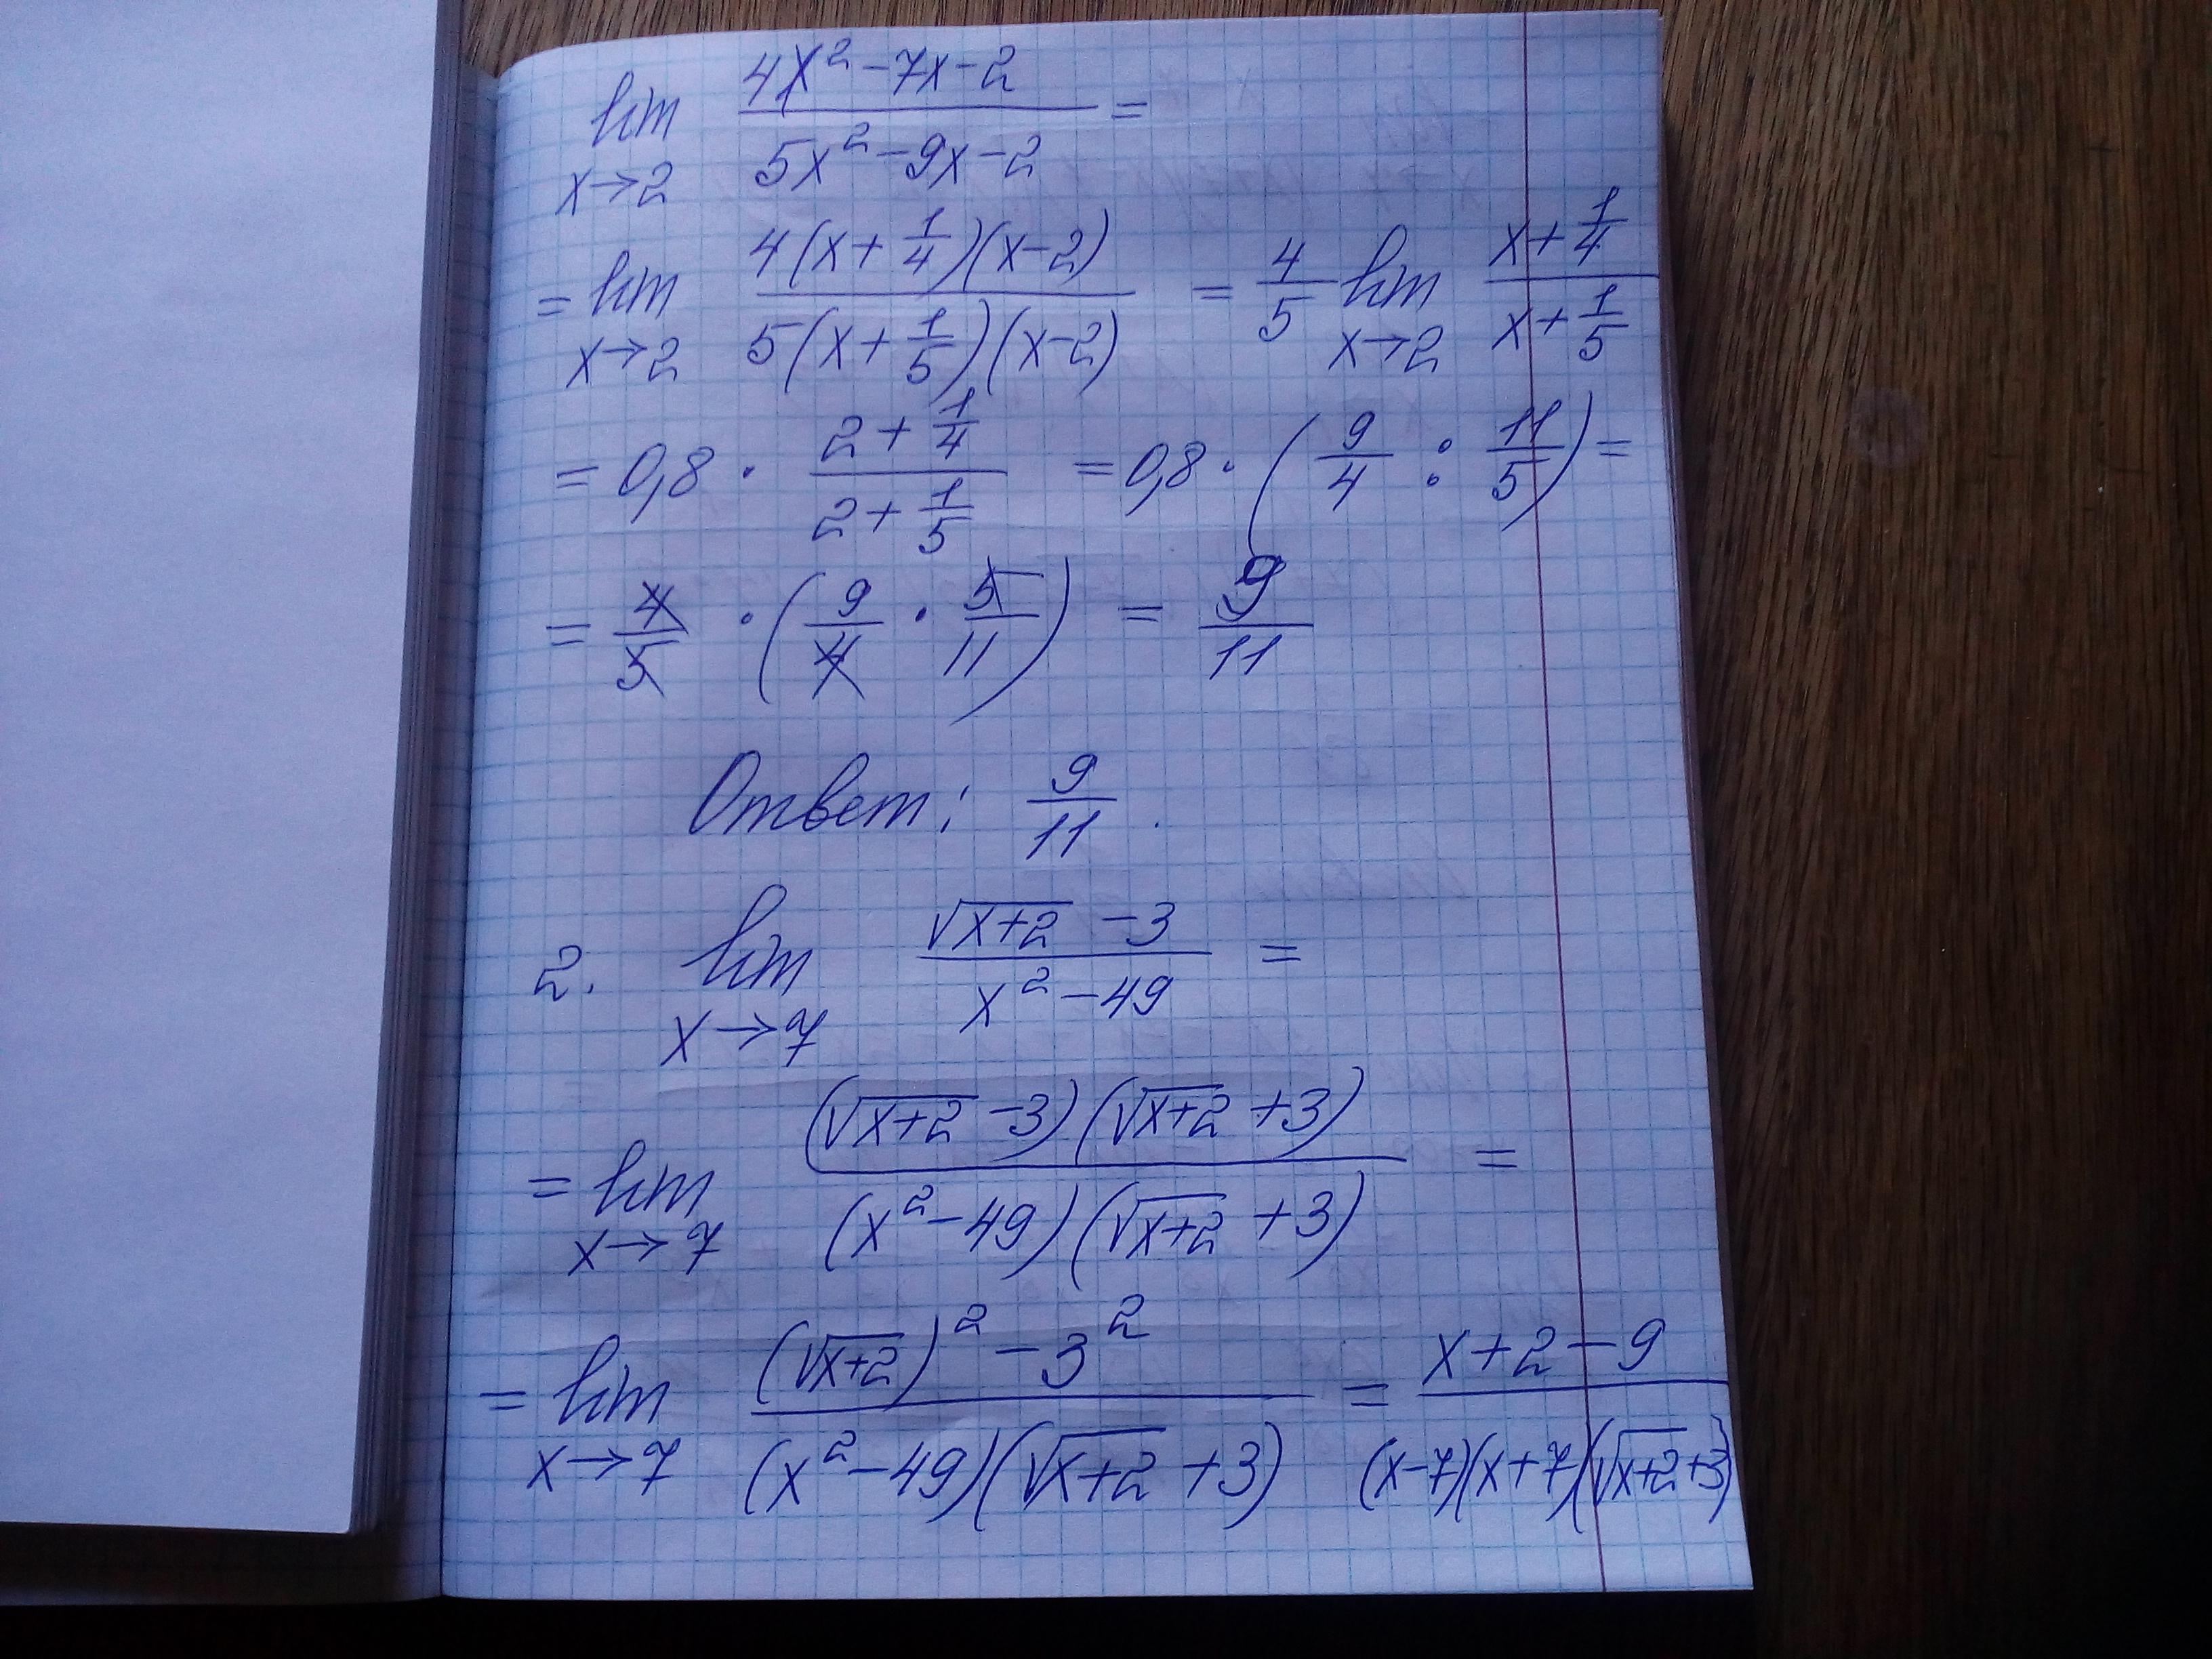 lim 4x² - 7x - 2 / 5x² - 9x - 2 =
x→2
= lim 4(x + 1/4)(x - 2) / 5(x + 1/5)(x - 2) = 4/5 lim x + 1/4 / x + 1/5
x→2 x→2
= 0,8 · 2 + 1/4 / 2 + 1/5 = 0,8 · (9/4 : 11/5) =
= 4/5 · (9/4 · 5/11) = 9/11
Ответ: 9/11.
2. lim √x+2 - 3 / x² - 49 =
x→7
= lim (√x+2 - 3)(√x+2 + 3) / (x² - 49)(√x+2 + 3) =
x→7
= lim (√x+2)² - 3² / (x² - 49)(√x+2 + 3) = x + 2 - 9 / (x-7)(x+7)(√x+2 + 3)
x→7